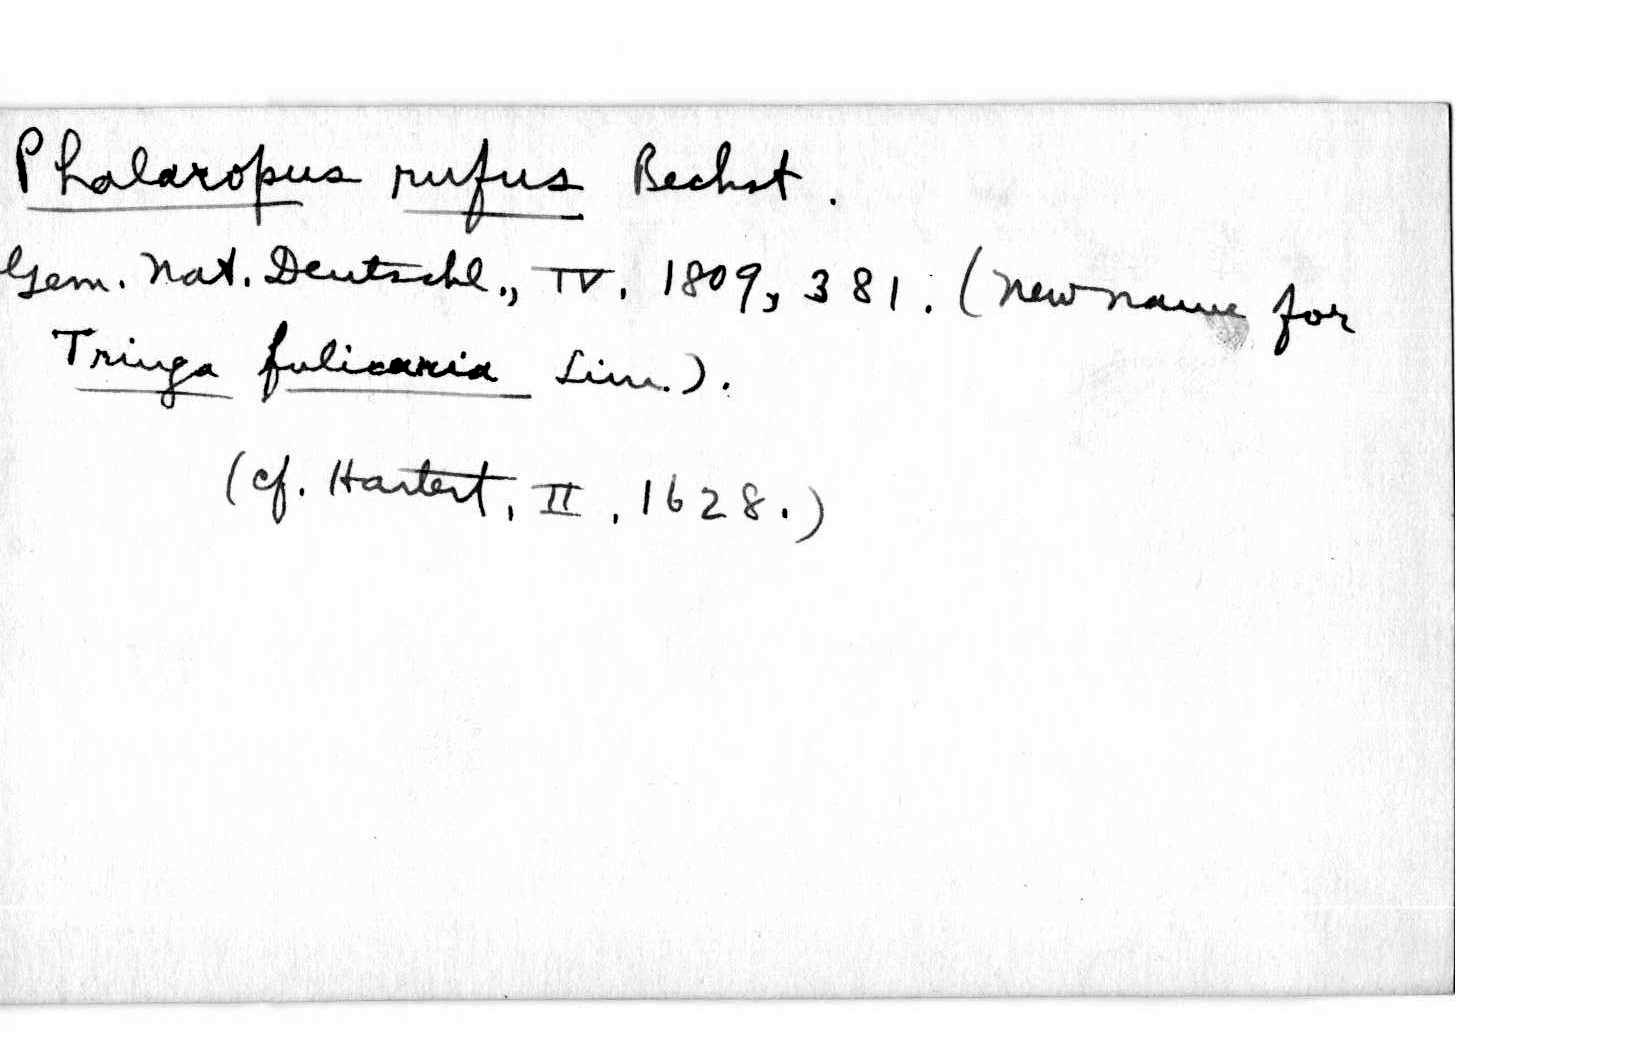 Phalaropus rufus Bechst.
Gem. Nat. Deutschl., IV. 1809, 381. (New name for
Tringa fulicaria Linn.).
(cf. Hartert, II, 1628.)